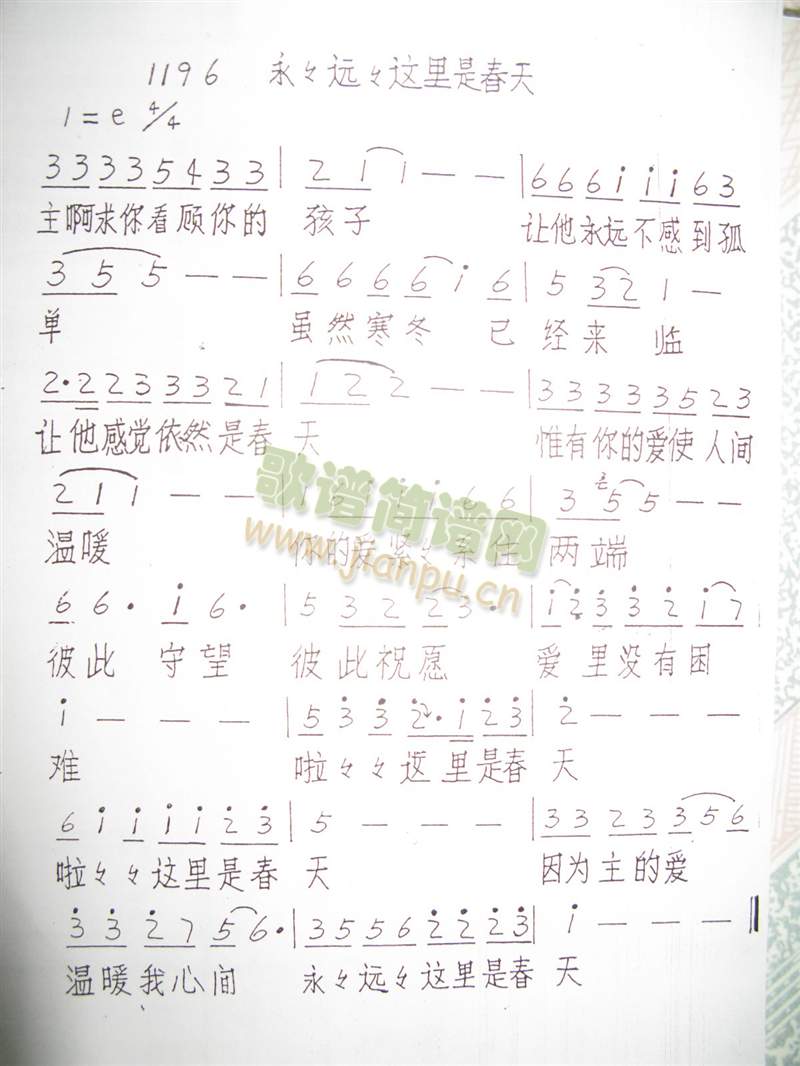 1196 永々远々这里是春天
1=e 4/4
3 3 3 3 5 4 3 3 | 2 1 1 — — | 6 6 6 i i i 6 3
主啊求你看顾你的 孩子 让他永远不感到孤
3 5 5 — — | 6 6 6 6 i 6 | 5 3 2 1 —
单 虽然寒冬 已经来临
2· 2 2 3 3 3 2 1 | 1 2 2 — — | 3 3 3 3 3 5 2 3
让他感觉依然是春天 惟有你的爱使人间
2 1 1 — — | 1 6 i i 6 6 | 3 5 5 — —
温暖 你的爱紧々系住 两端
歌谱简谱网
www.jianpu.cn
6 6· i 6· | 5 3 2 2 2 3· | i 2 3 3 2 i 7
彼此 守望 彼此祝愿 爱里没有困
i — — — | 5 3 3 2· i 2 3 | 2 — — —
难 啦々々这里是春天
6 i i i i 2 3 | 5 — — — | 3 3 2 3 3 5 6
啦々々这里是春 天 因为主的爱
3 3 2 7 5 6· | 3 5 5 6 2 2 2 3 | i — — —
温暖我心间 永々远々这里是春 天